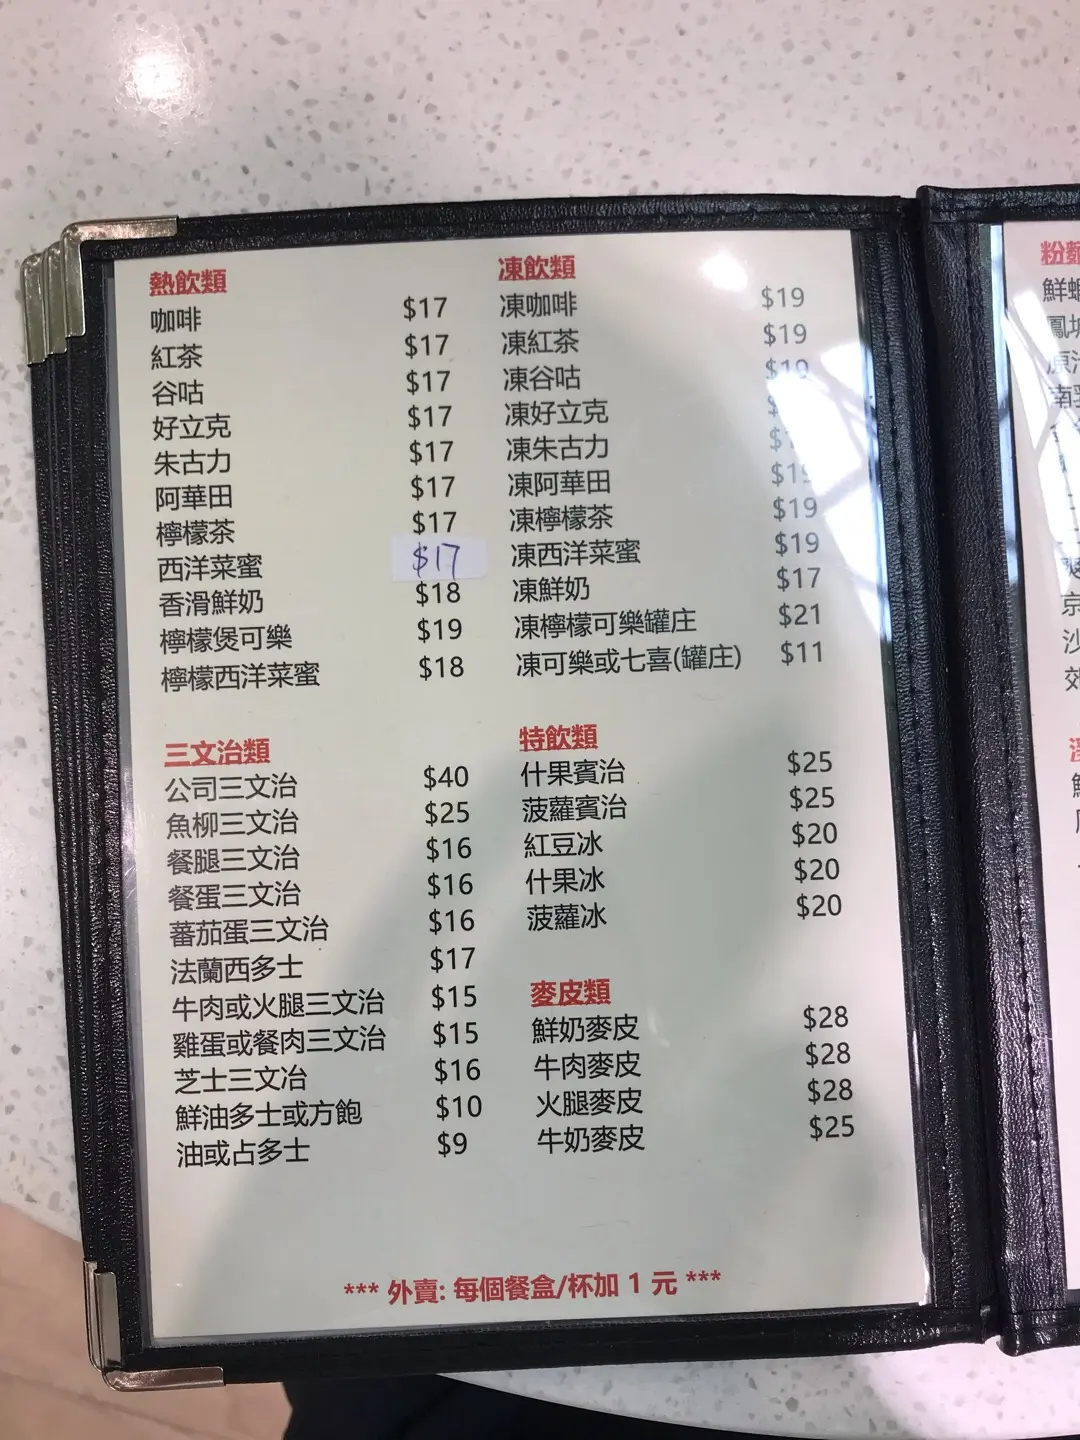 熱飲類
咖啡 $17
紅茶 $17
谷咕 $17
好立克 $17
朱古力 $17
阿華田 $17
檸檬茶 $17
西洋菜蜜 $17
香滑鮮奶 $18
檸檬煲可樂 $19
檸檬西洋菜蜜 $18
凍飲類
凍咖啡 $19
凍紅茶 $19
凍谷咕 $19
凍好立克
凍朱古力
凍阿華田 $19
凍檸檬茶 $19
凍西洋菜蜜 $19
凍鮮奶 $17
凍檸檬可樂罐庄 $21
凍可樂或七喜(罐庄) $11
三文治類
公司三文治 $40
魚柳三文治 $25
餐腿三文治 $16
餐蛋三文治 $16
蕃茄蛋三文治 $16
法蘭西多士 $17
牛肉或火腿三文治 $15
雞蛋或餐肉三文治 $15
芝士三文冶 $16
鮮油多士或方飽 $10
油或占多士 $9
特飲類
什果賓治 $25
菠蘿賓治 $25
紅豆冰 $20
什果冰 $20
菠蘿冰 $20
麥皮類
鮮奶麥皮 $28
牛肉麥皮 $28
火腿麥皮 $28
牛奶麥皮 $25
*** 外賣: 每個餐盒/杯加 1 元 ***
粉麵
鮮蝦
鳳城
南乳
京
沙
郊